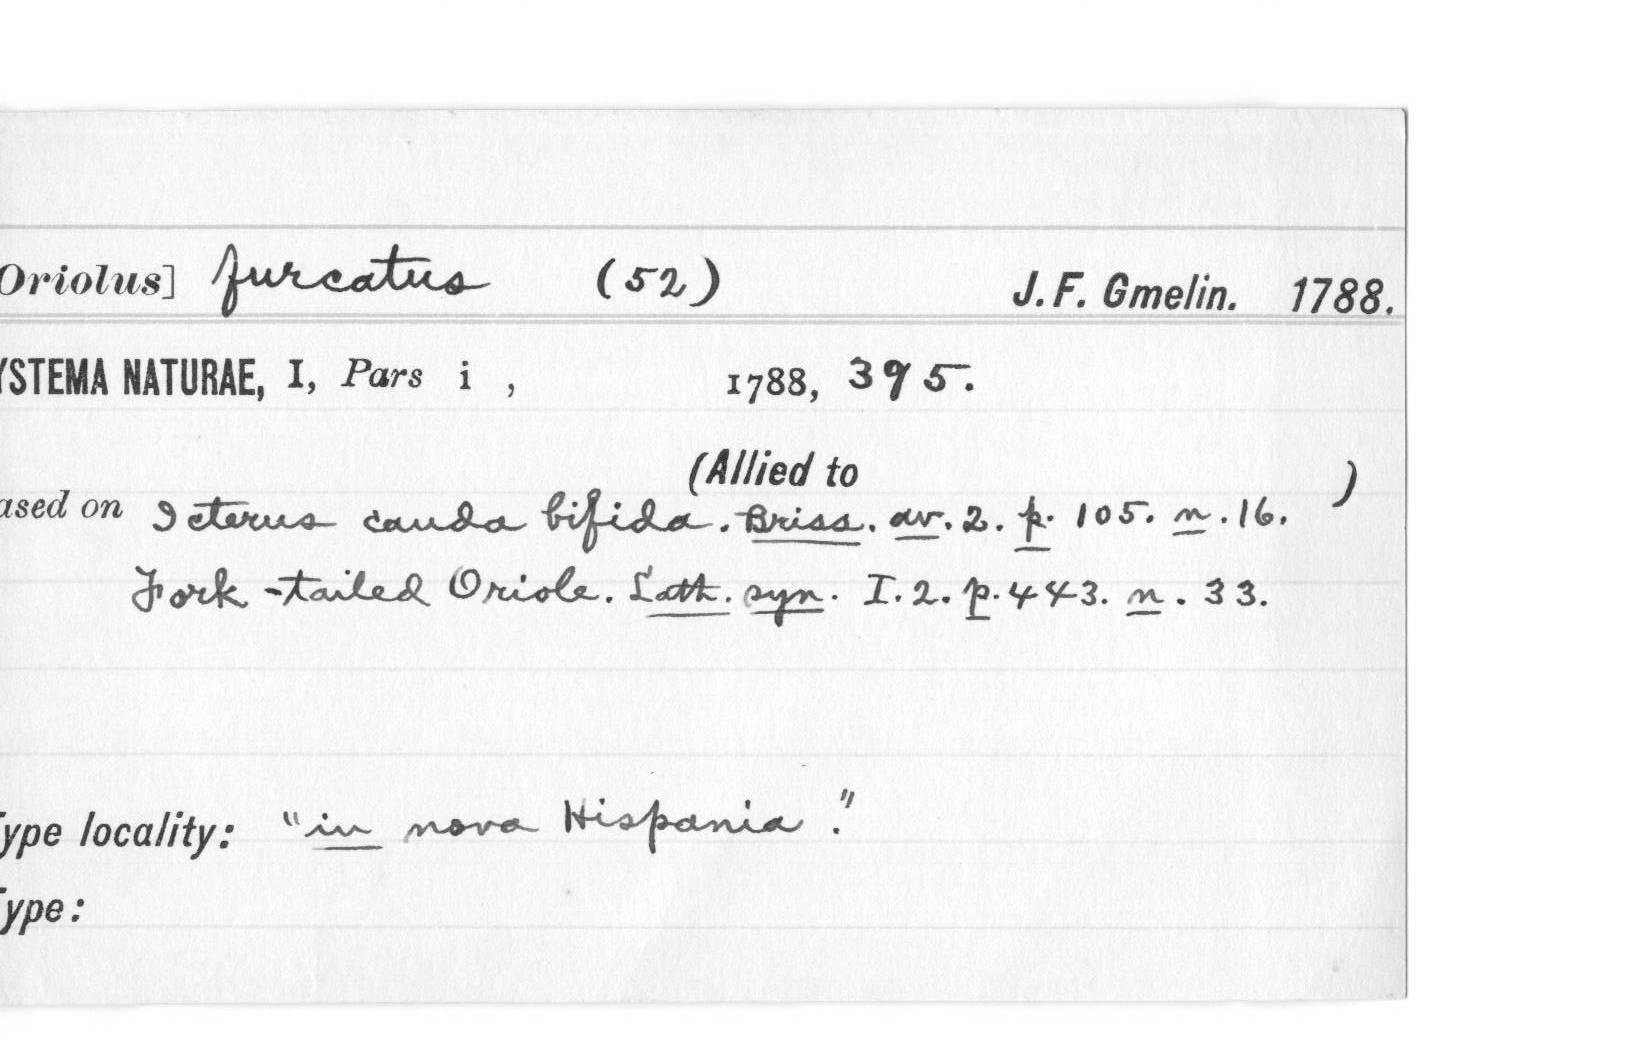 Oriolus] furcatus (52) J. F. Gmelin. 1788.
YSTEMA NATURAE, I, Pars i , 1788, 395.
(Allied to )
ased on Icterus cauda bifida. Briss. av. 2. p. 105. n. 16.
Fork-tailed Oriole. Lath. syn. I. 2. p. 443. n. 33.
Type locality: "in nova Hispania."
Type: